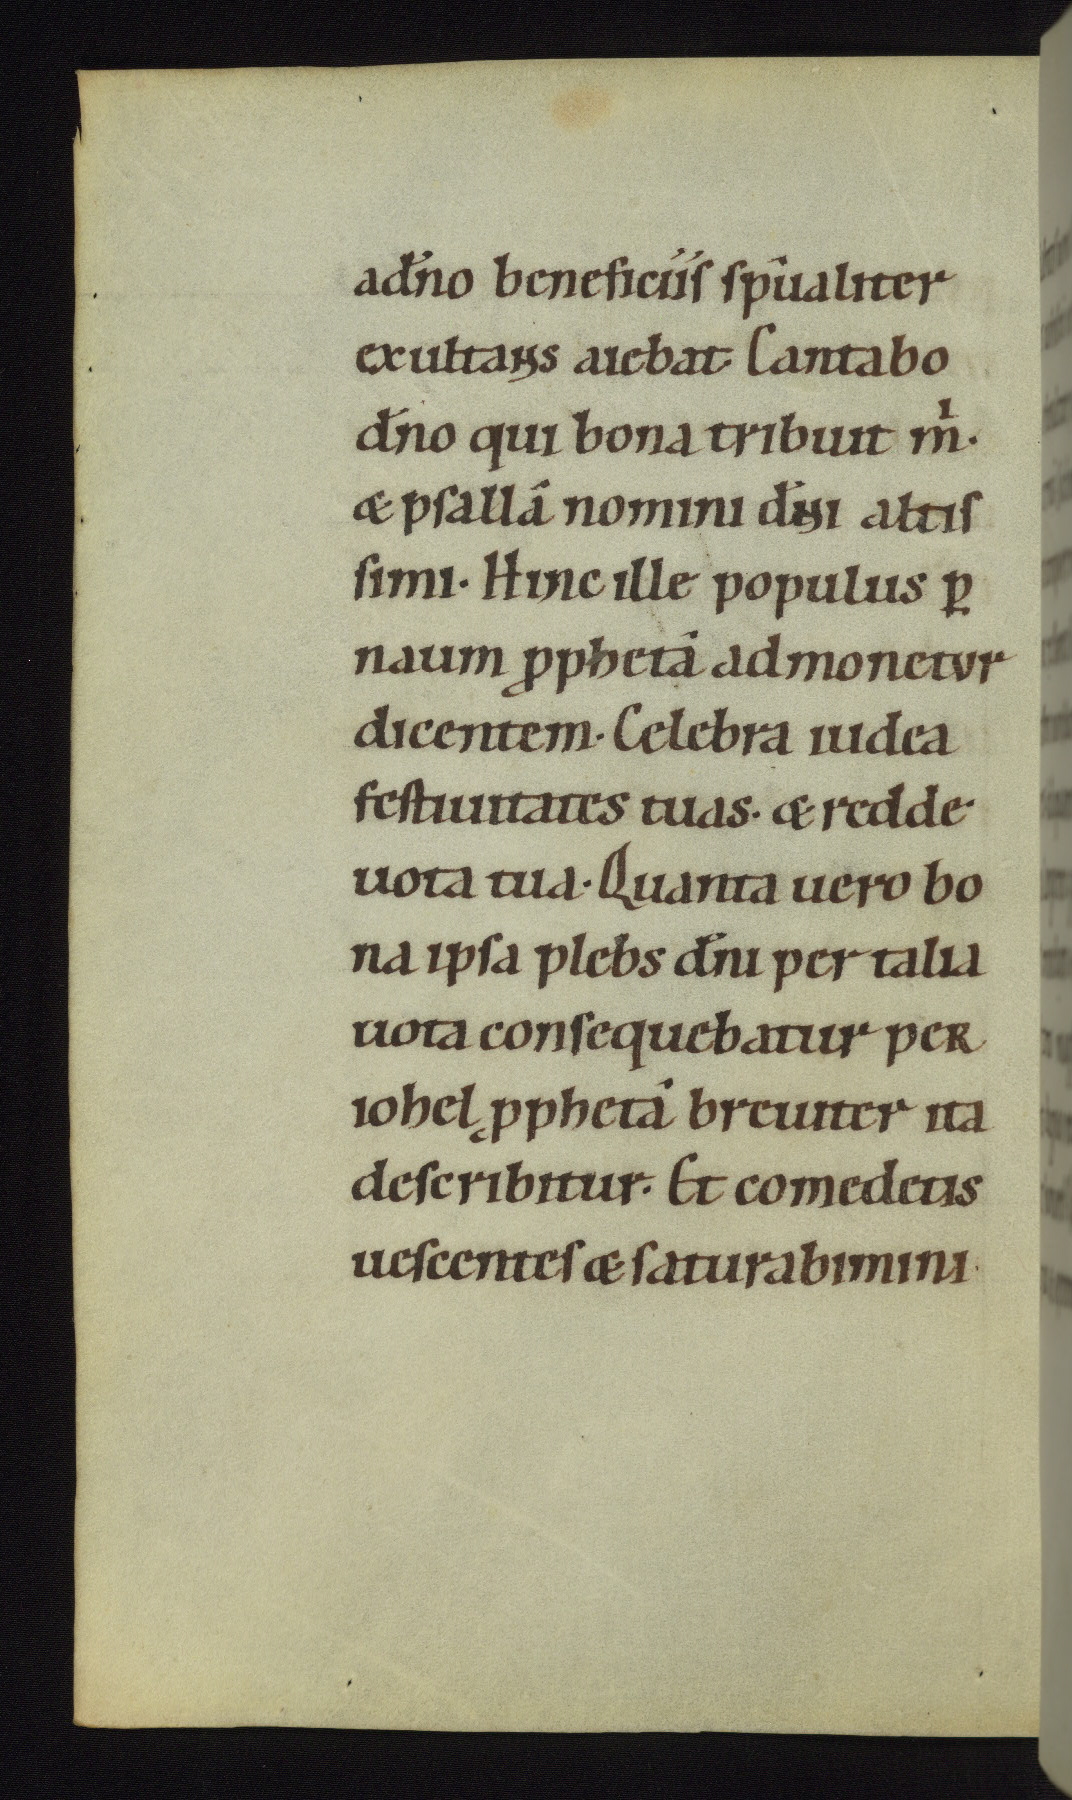 ad̄no beneficiis sp̄ualiter
exultans aiebat Cantabo
dn̄o qui bona tribuit m̄.
& psallā nomini dn̄i altis
simi. Hinc ille populus ꝑ
naum ꝓphetā admonetur
dicentem. Celebra iudea
festiuitates tuas. & redde
uota tua. Quanta uero bo
na ipsa plebs dn̄i per talia
uota consequebatur per
iohel ꝓphetā breuiter ita
describitur. Et comedetis
uescentes & saturabimini